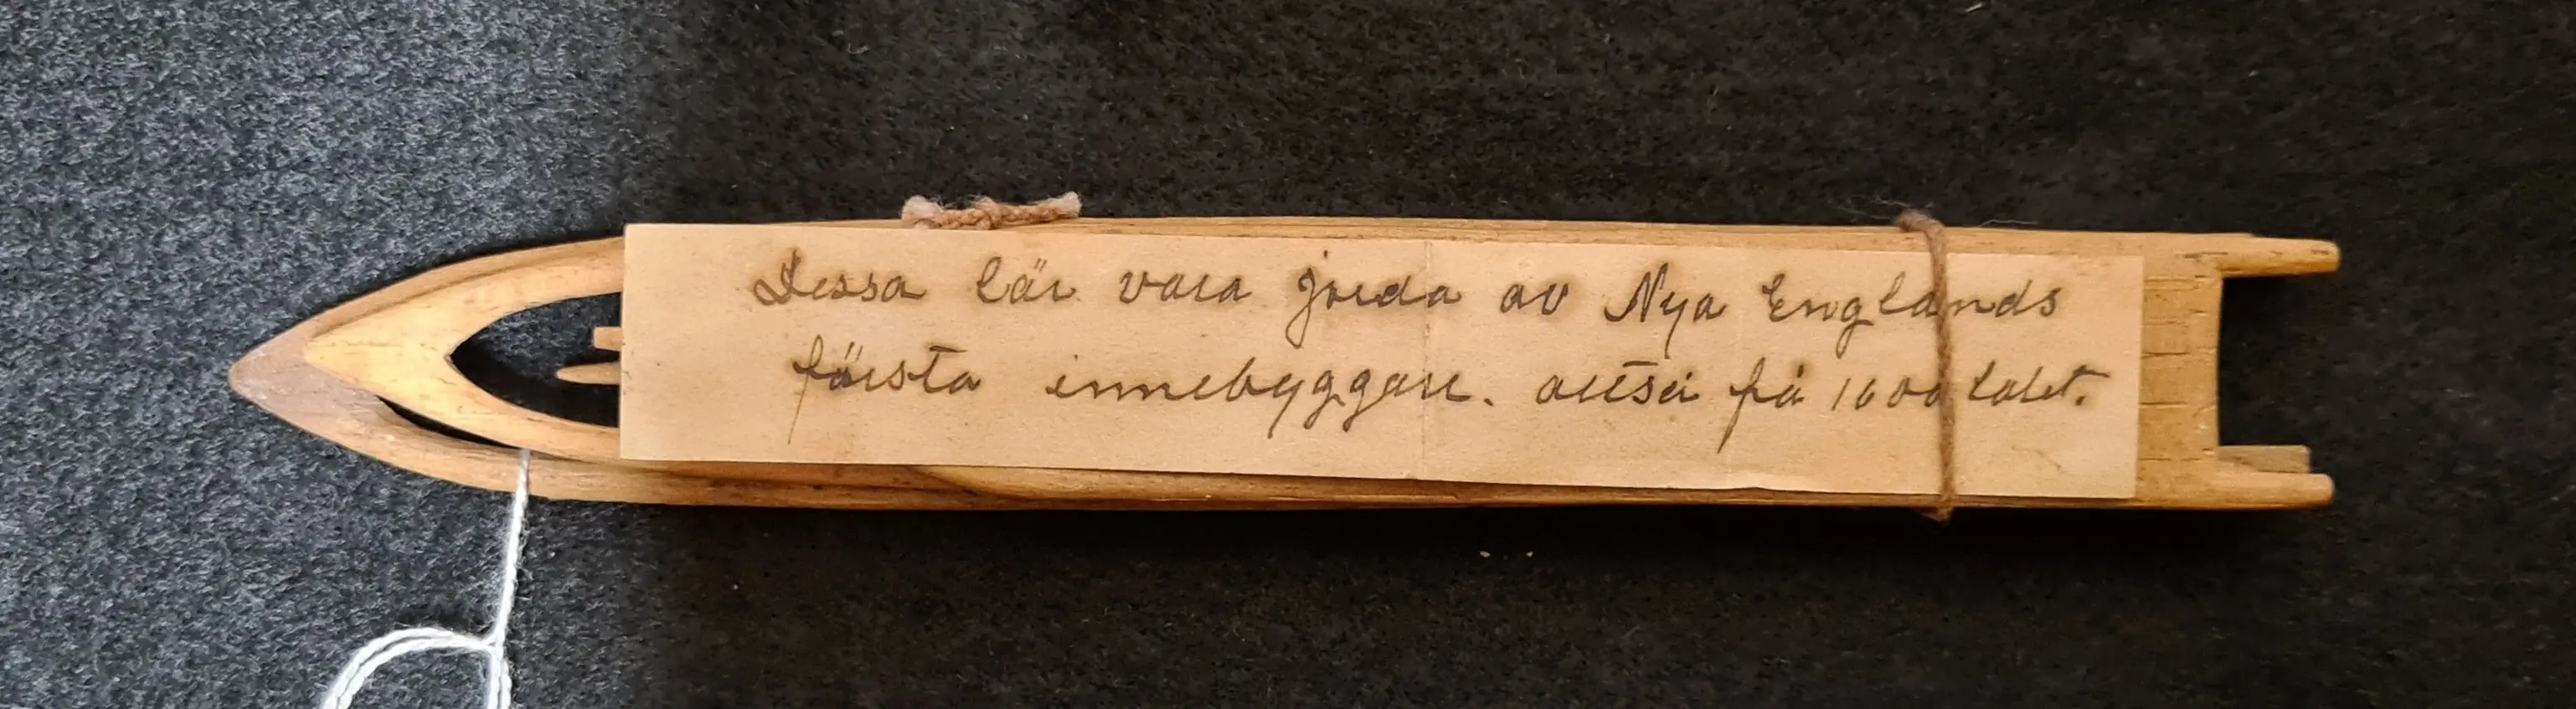 Dessa lär vara gjorda av Nya Englands
första innebyggare. alltså på 1600 talet.